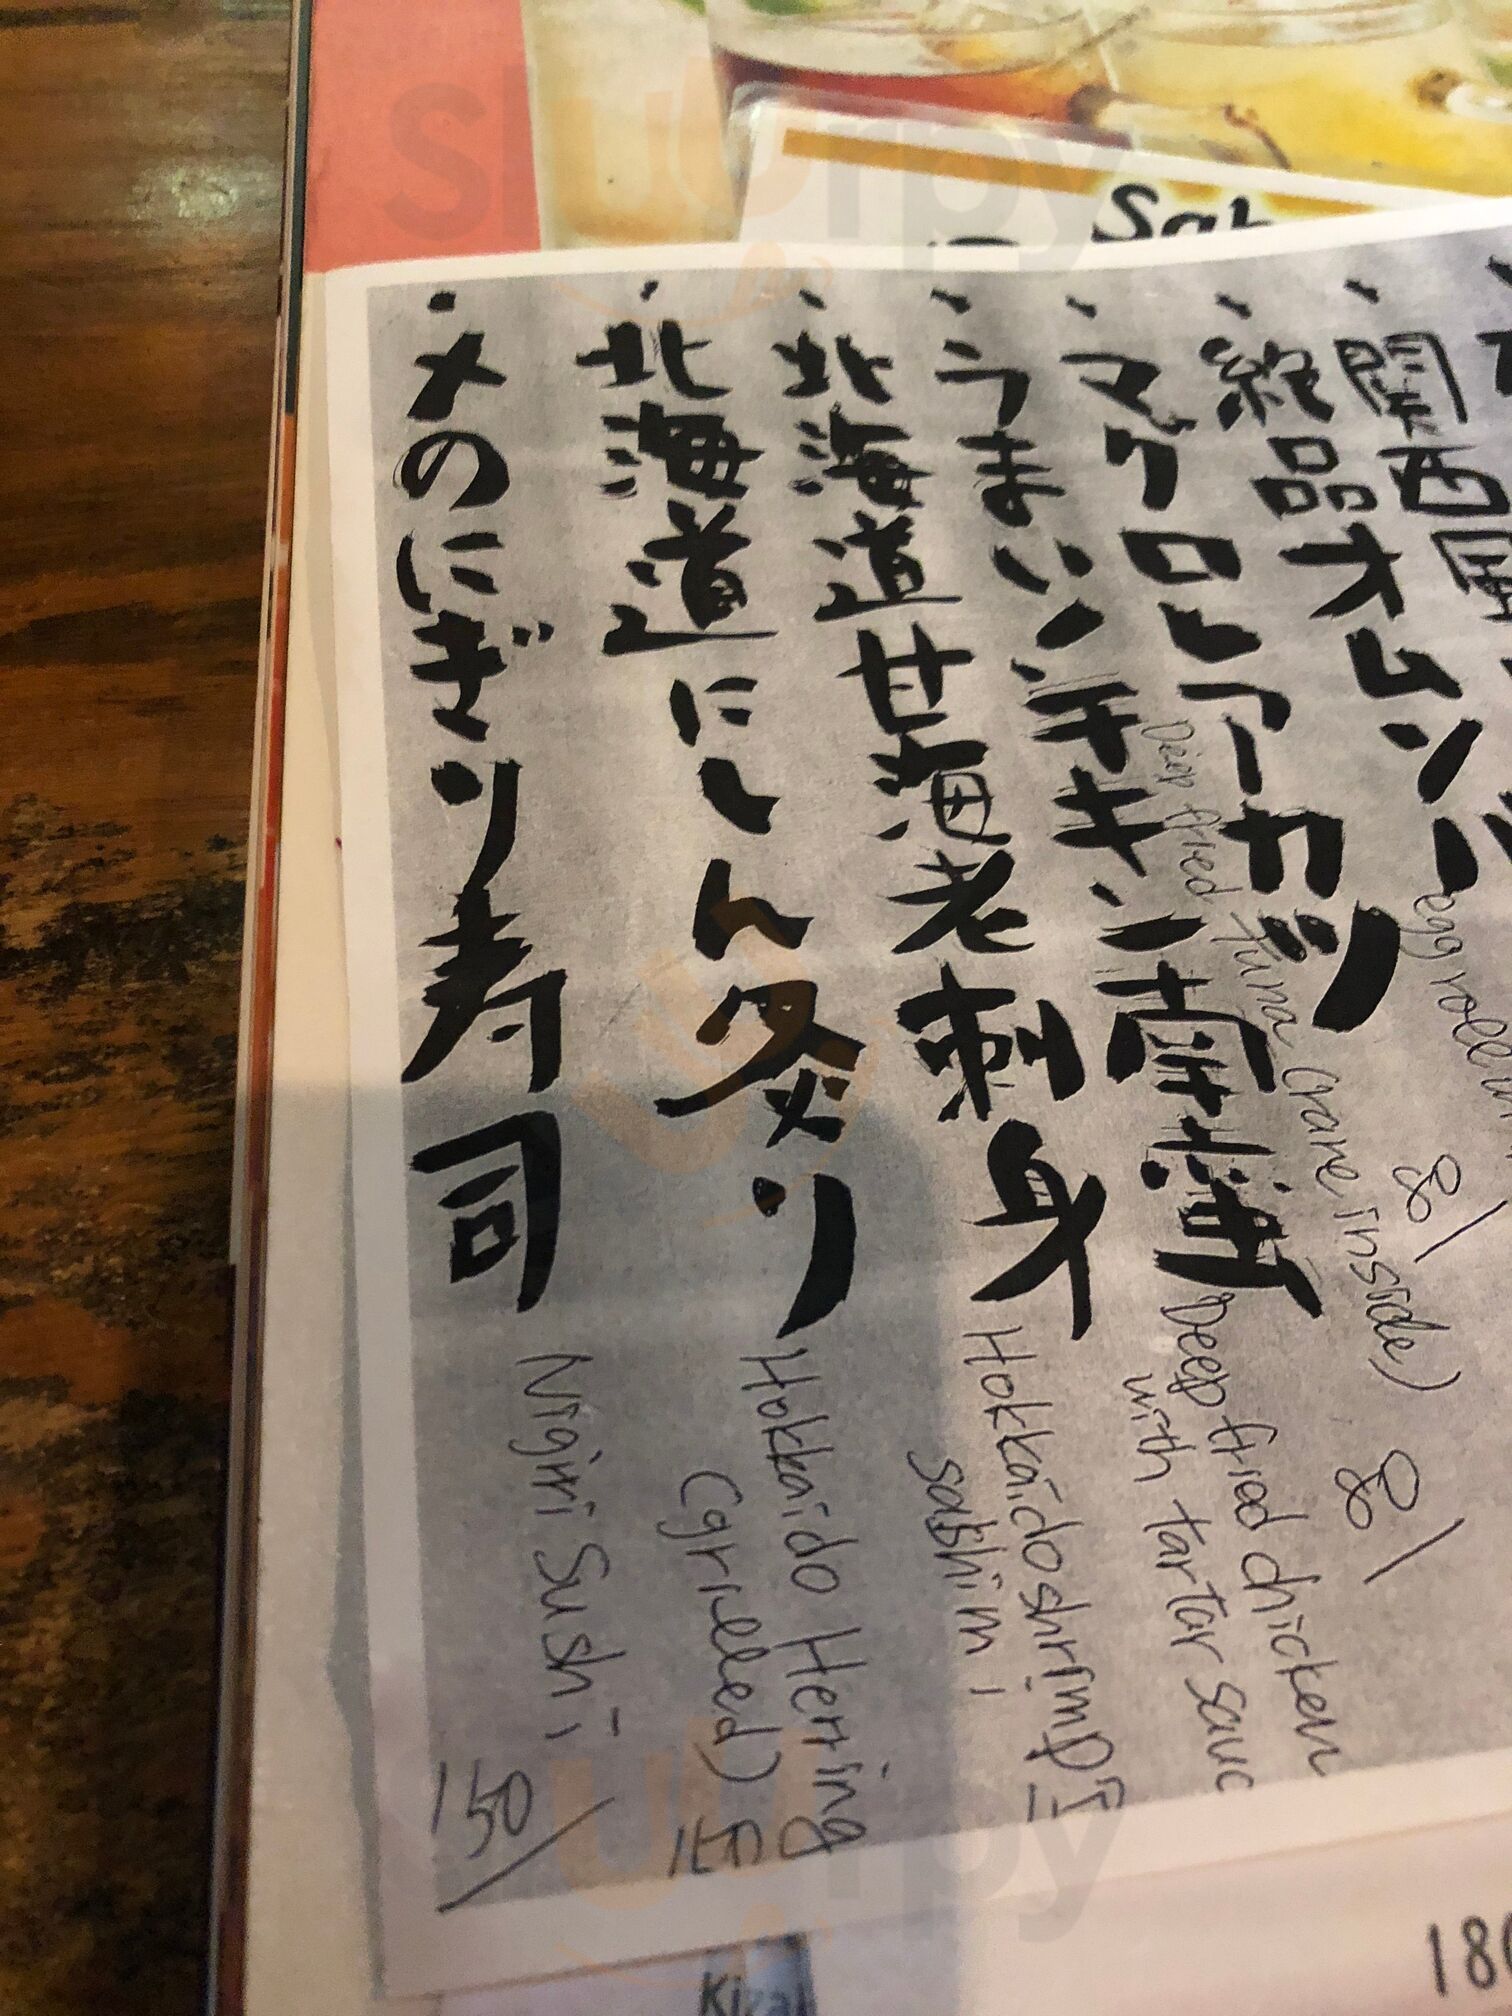 関西風
・絶品オムソバ
egg roll
80/
・マグロレアーカツ
Deep fried tuna (rare inside)
80/
・うまいチキン南蛮
Deep fried chicken
with tartar sauc
・北海道甘海老刺身
Hokkaido shrimp
sashimi
・北海道にしん炙り
Hokkaido Herring
(grilled)
・〆のにぎり寿司
Nigiri Sushi
150/
180
slurrpy
slurrpy